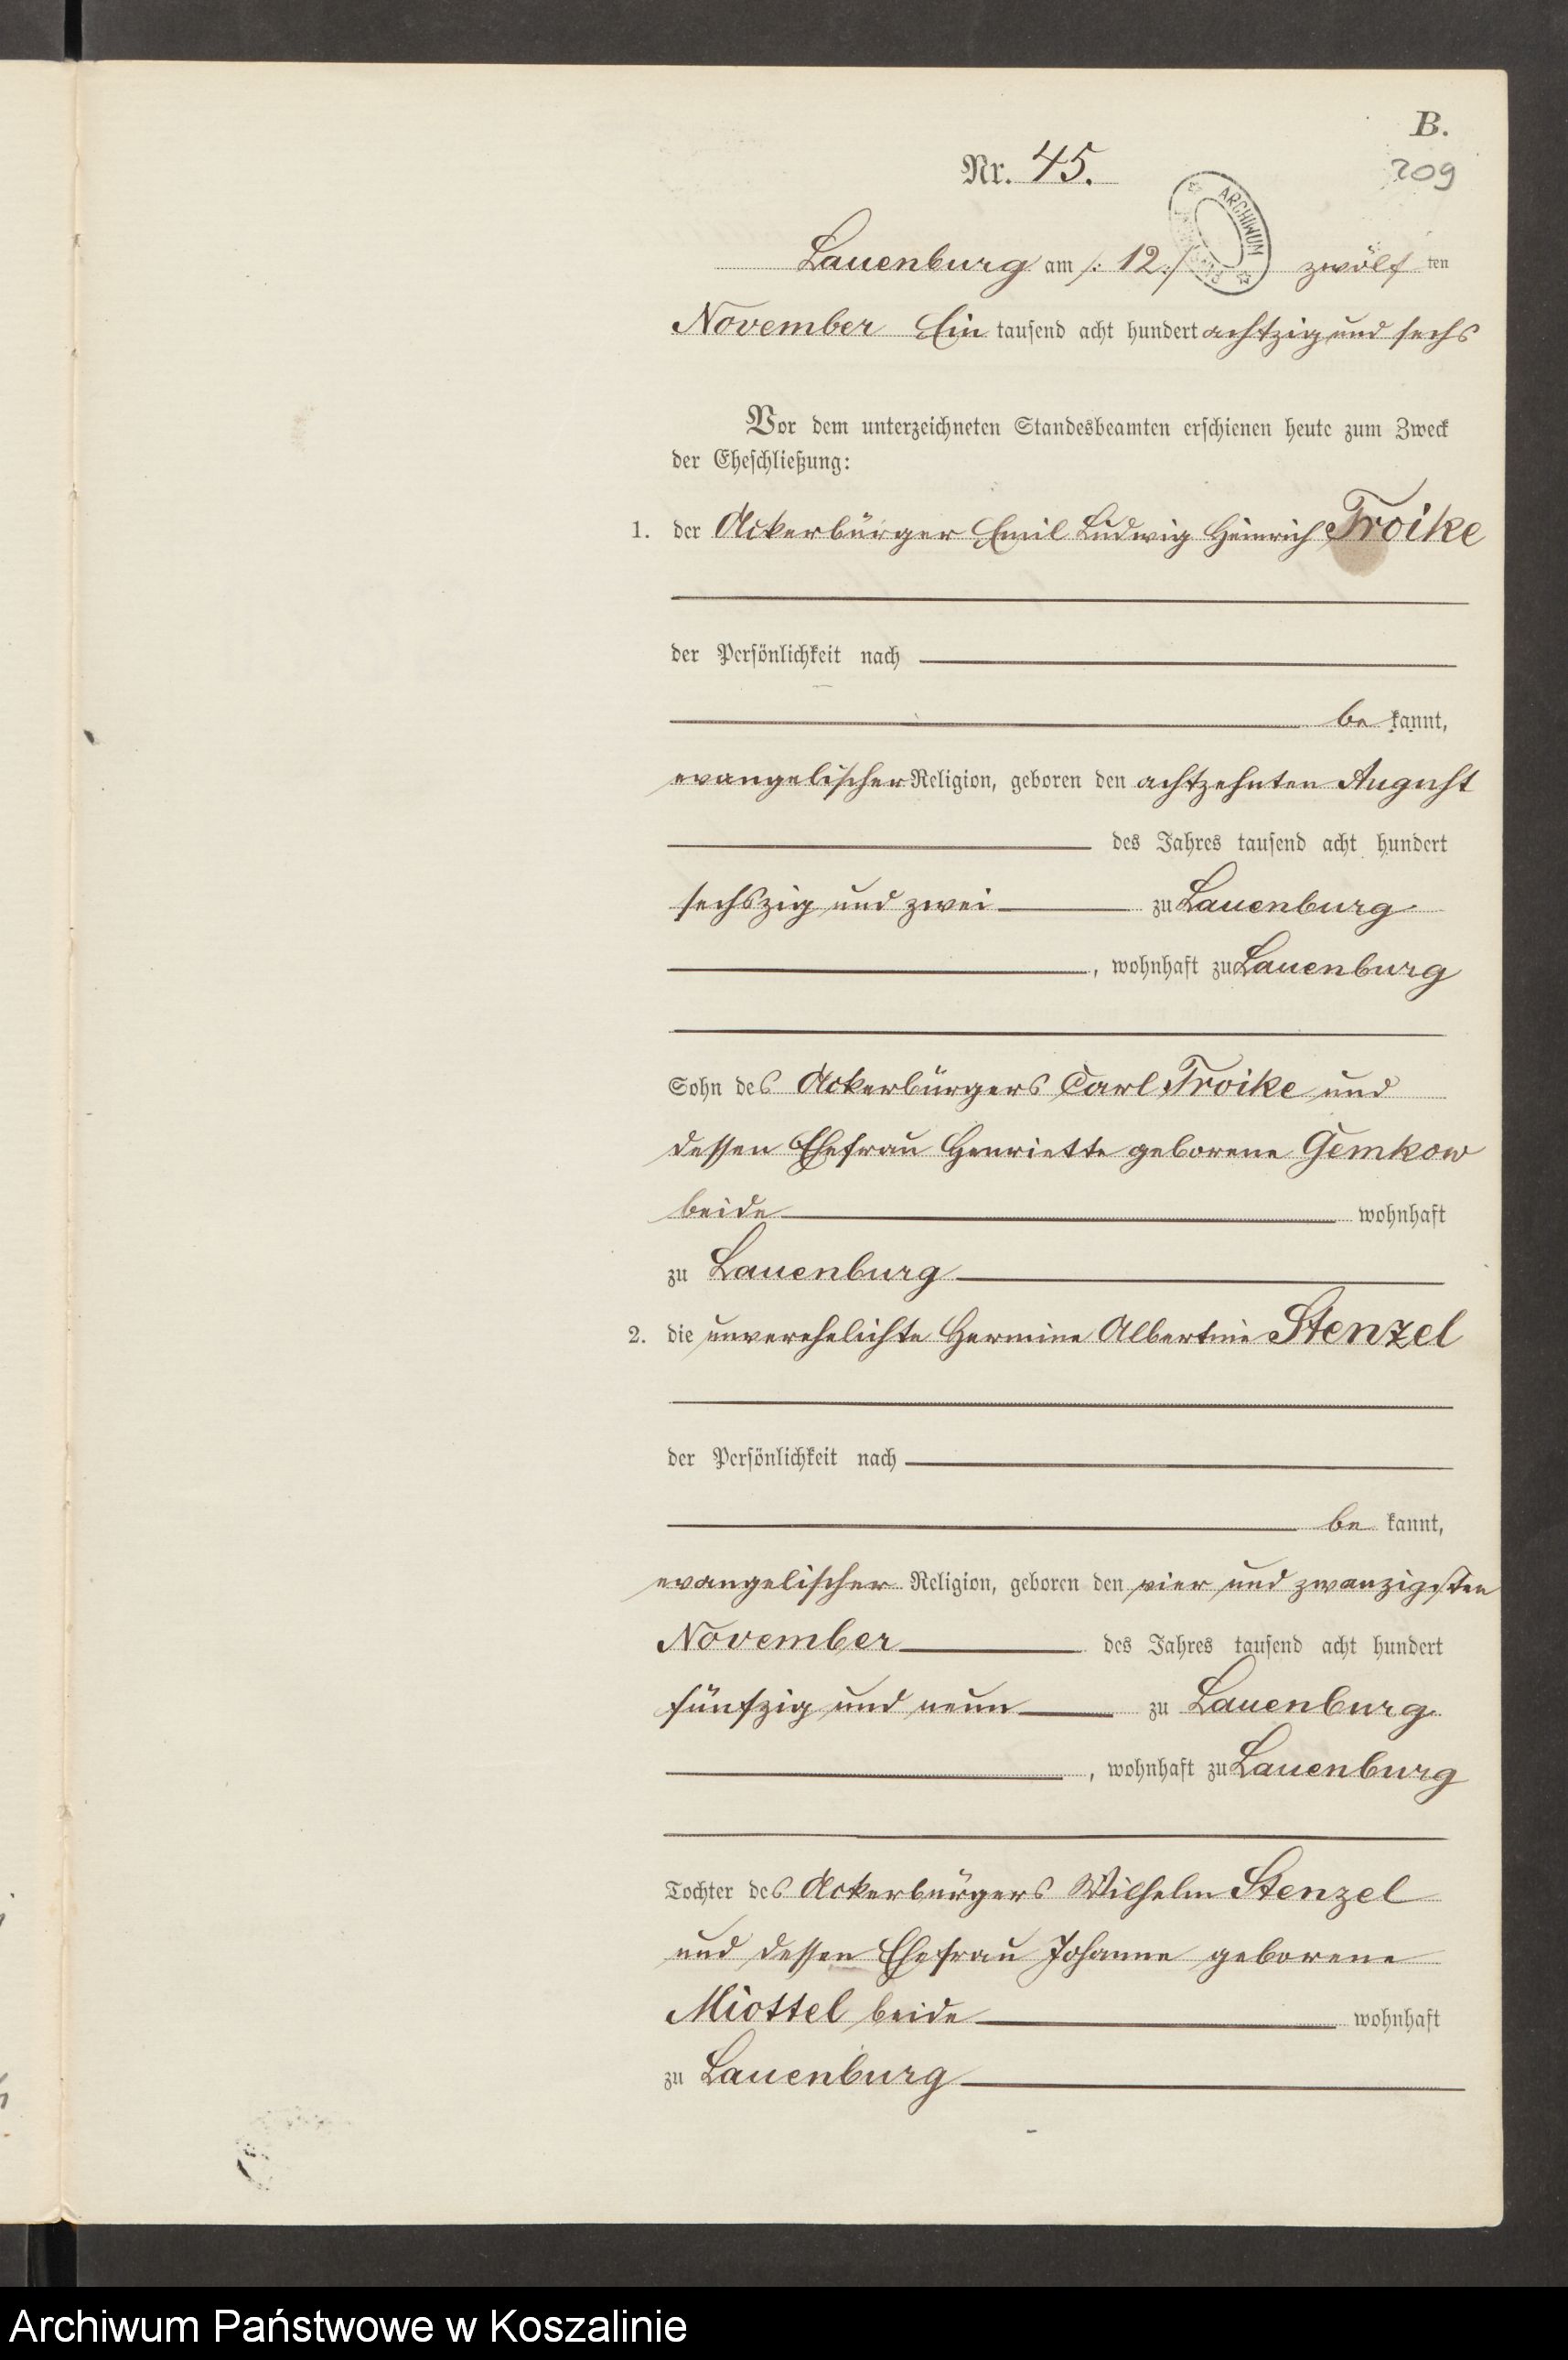 B.
Nr. 45.
209
ARCHIWUM
Lauenburg am /: 12 :/ zwölf ten
November Ein tausend acht hundert achtzig und sechs
Vor dem unterzeichneten Standesbeamten erschienen heute zum Zweck
der Eheschließung:
1. der Ackerbürger Emil Ludwig Heinrich Troike
der Persönlichkeit nach
be kannt,
evangelischer Religion, geboren den achtzehnten August
des Jahres tausend acht hundert
sechszig und zwei zu Lauenburg
, wohnhaft zu Lauenburg
Sohn des Ackerbürgers Carl Troike und
dessen Ehefrau Henriette geborene Gemkow
beide wohnhaft
zu Lauenburg
2. die unverehelichte Hermine Albertine Stenzel
der Persönlichkeit nach
be kannt,
evangelischer Religion, geboren den vier und zwanzigsten
November des Jahres tausend acht hundert
fünfzig und neun zu Lauenburg
, wohnhaft zu Lauenburg
Tochter des Ackerbürgers Wilhelm Stenzel
und dessen Ehefrau Johanne geborene
Miottel beide wohnhaft
zu Lauenburg
Archiwum Państwowe w Koszalinie